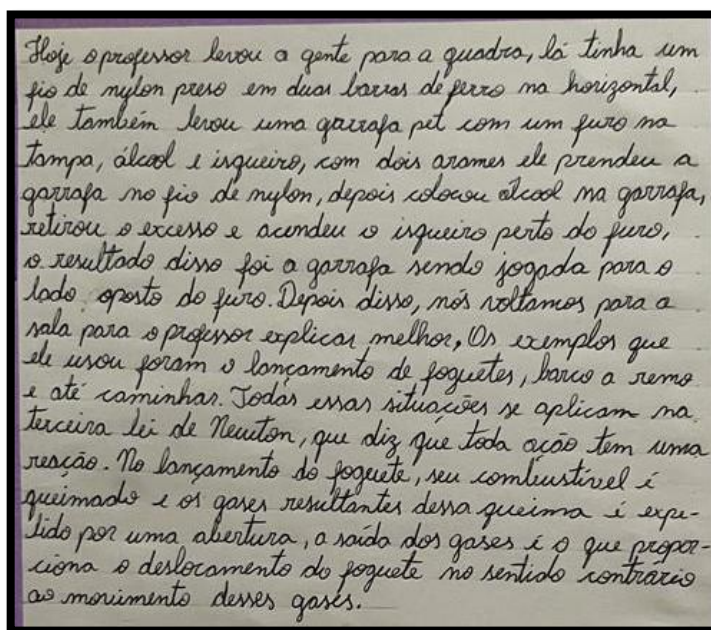 Hoje o professor levou a gente para a quadra, lá tinha um
fio de nylon preso em duas barras de ferro na horizontal,
ele também levou uma garrafa pet com um furo na
tampa, álcool e isqueiro, com dois arames ele prendeu a
garrafa no fio de nylon, depois colocou álcool na garrafa,
retirou o excesso e acendeu o isqueiro perto do furo,
o resultado disso foi a garrafa sendo jogada para o
lado oposto do furo. Depois disso, nós voltamos para a
sala para o professor explicar melhor, Os exemplos que
ele usou foram o lançamento de foguetes, barco a remo
e até caminhar. Todas essas situações se aplicam na
terceira lei de Newton, que diz que toda ação tem uma
reação. No lançamento do foguete, seu combustível é
queimado e os gases resultantes dessa queima é expe-
lido por uma abertura, a saída dos gases é o que propor-
ciona o deslocamento do foguete no sentido contrário
ao movimento desses gases.